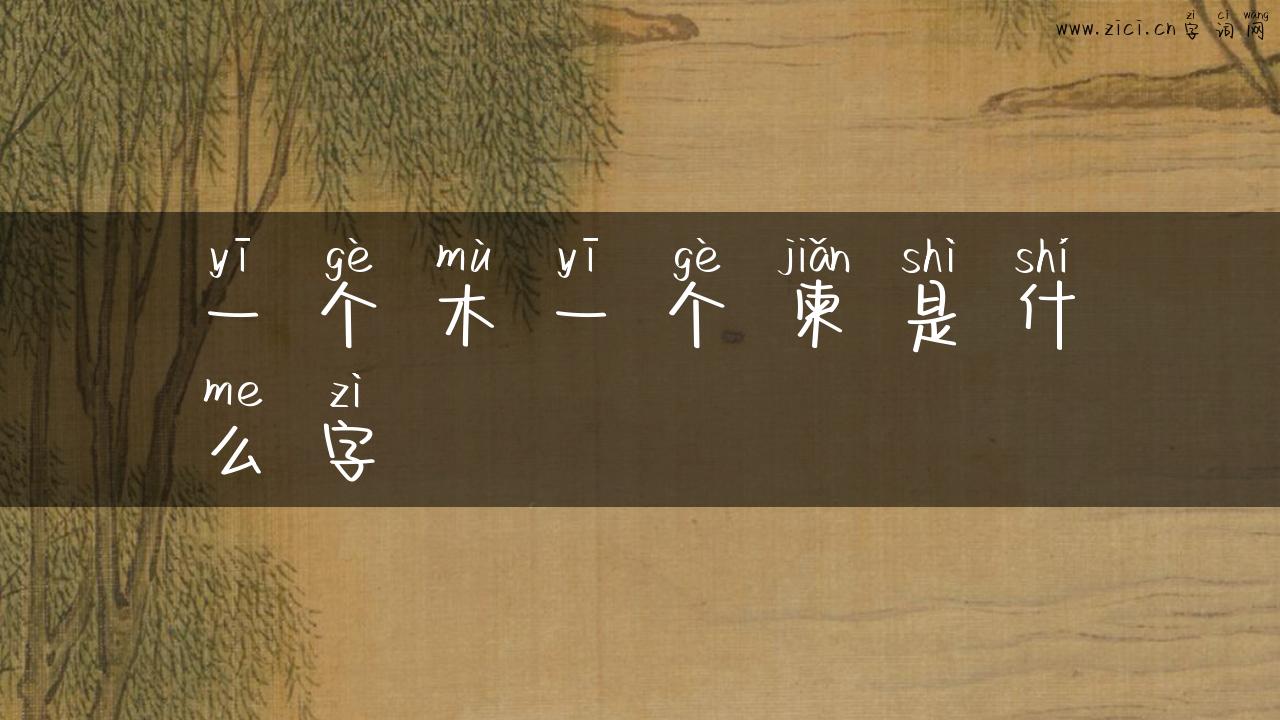 www.zici.cn 字词网
zì cí wǎng
yī gè mù yī gè jiǎn shì shí
一个木一个柬是什
me zì
么字